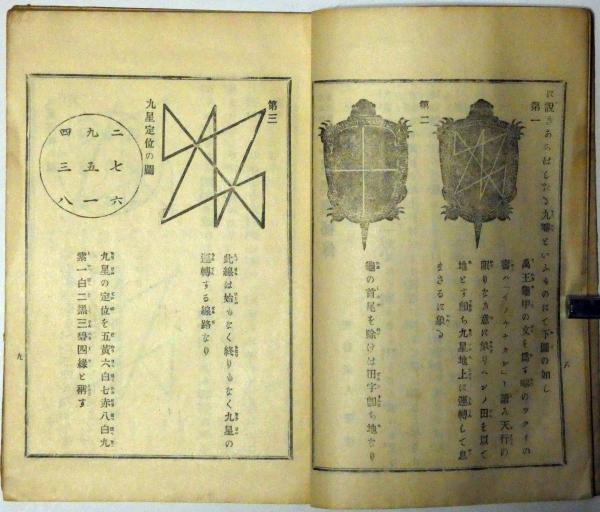 に説きあらはしたる九疇といふものにて下圖の如し
第一
禹王龜甲の文を爲す疇のツクイの
讀み天行の
限りなき意に象りヘンノ田を以て
地とす卽ち九星地上に運轉して息
まさるに象る
第二
龜の首尾を除けは田字卽ち地なり
第三
此線は始もなく終りもなく九星の
運轉する線路なり
九星定位の圖
二 七 六
九 五 一
四 三 八
九星の定位を五黃六白七赤八白九
紫一白二黑三碧四緑と稱す
九